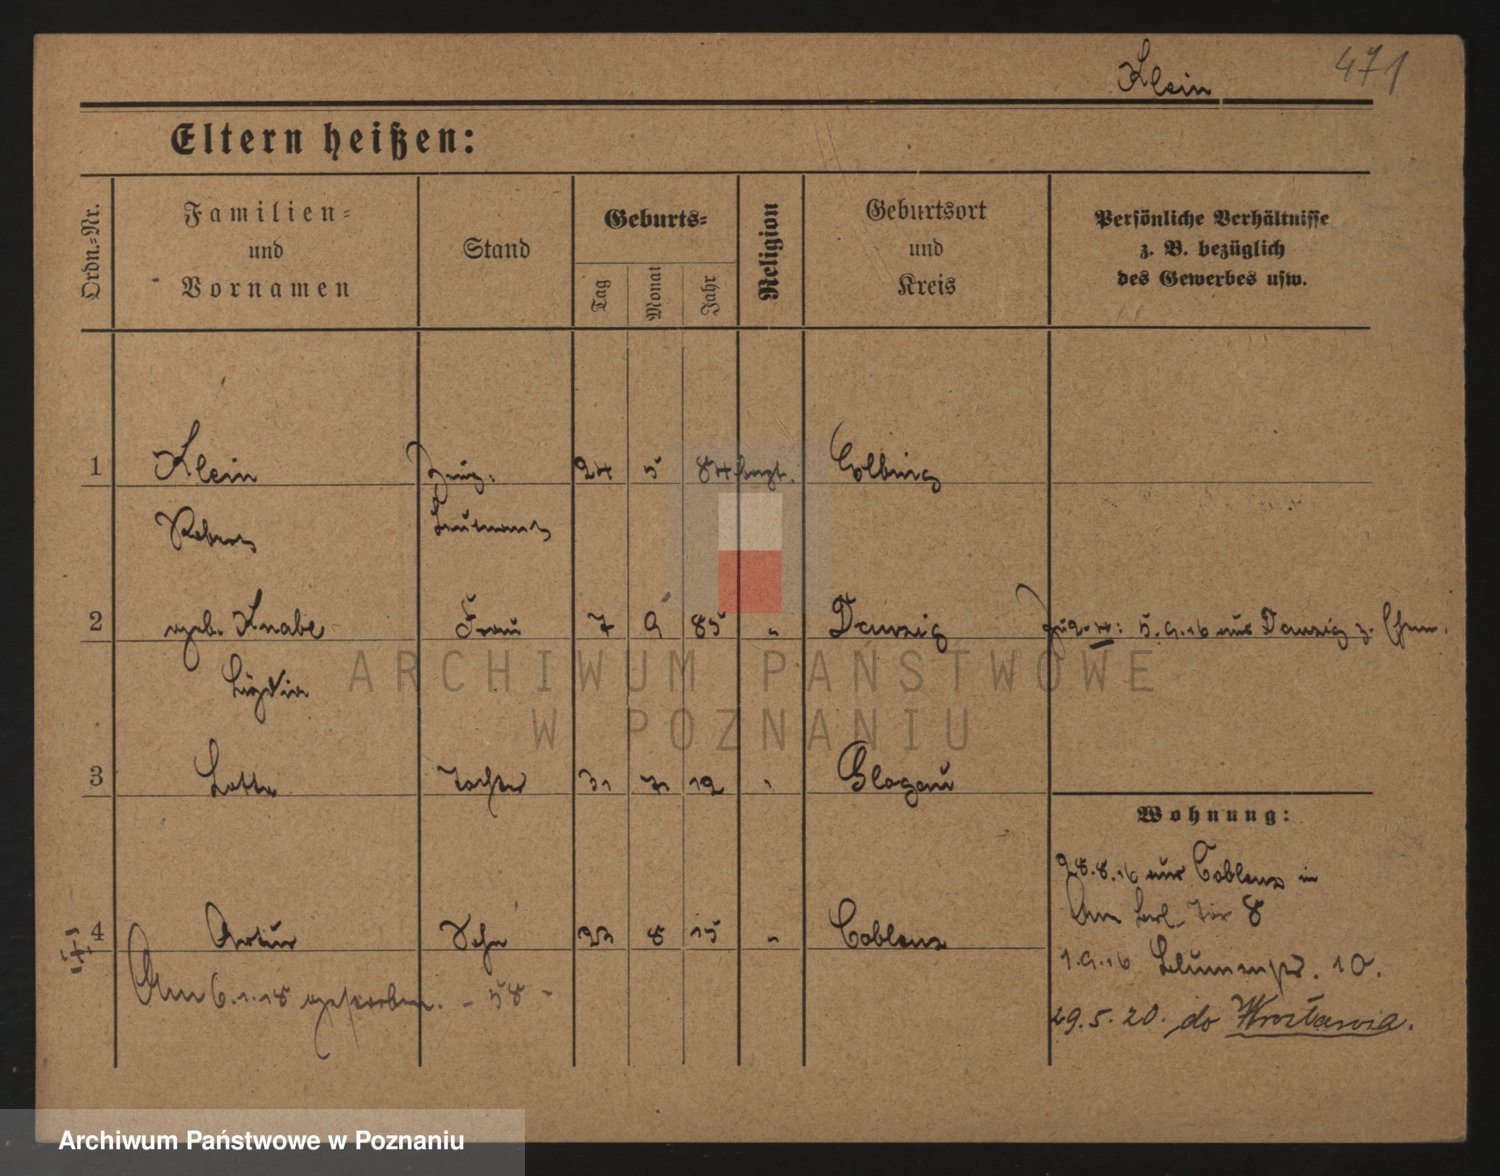 Klein 471
Eltern heißen:
Ordn.-Nr.
Familien-
und
Vornamen
Stand
Geburts-
Tag
Monat
Jahr
Religion
Geburtsort
und
Kreis
Persönliche Verhältnisse
z. B. bezüglich
des Gewerbes usw.
1 Klein 24 5 84
Robert
2 geb. Knabe Frau 7 9 85 " Danzig 5.9.16 aus Danzig z. Ehem.
Lydia
ARCHIWUM PAŃSTWOWE
W POZNANIU
3 Lotte Tochter 31 7 12 " Glogau
Wohnung:
28.8.16 aus Coblenz in
Am Berl. Tor 8
4 Artur Sohn 23 8 15 " Coblenz
1.9.16 Blumenstr. 10.
Am 6.1.18 gestorben. - 58 -
29.5.20. do Wrocławia.
Archiwum Państwowe w Poznaniu